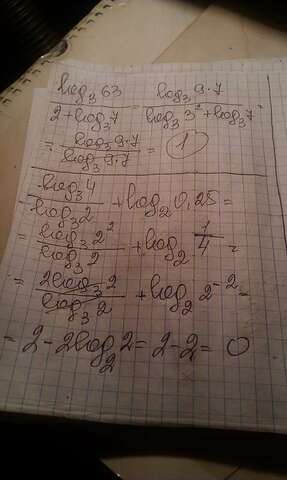 log₃63 / (2+log₃7) = log₃9·7 / (log₃3² + log₃7) =
= log₃9·7 / log₃9·7 = 1
log₃4 / log₃2 + log₂0,25 =
= log₃2² / log₃2 + log₂ 1/4 =
= 2log₃2 / log₃2 + log₂2⁻² =
= 2 - 2log₂2 = 2-2 = 0